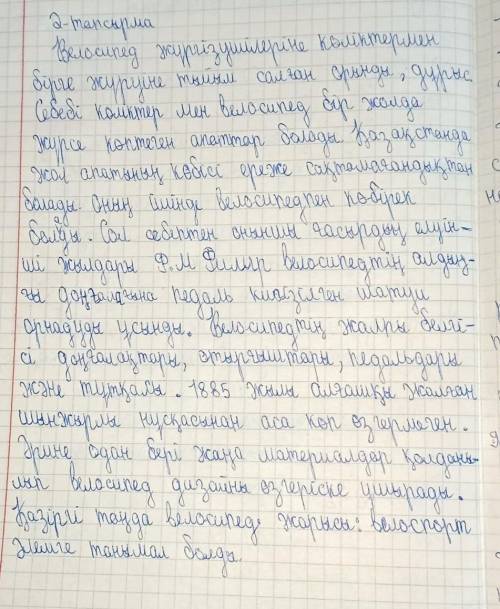 2-тапсырма
Велосипед жүргізушілеріне көліктермен
бірге жүруіне тыйым салған орынды, дұрыс.
Себебі көліктер мен велосипед бір жолда
жүрсе көптеген апаттар болады. Қазақстанда
жол апатының көбісі ереже сақтамағандықтан
болады. Оның ішінде велосипедпен көбірек
болады. Сол себептен оныншы ғасырдың елуін-
ші жылдары Ф.М Филлер велосипедтің алдың-
ғы доңғалағына педаль кигізілген шатун
орнадуды ұсынды. Велосипедтің жалпы белгі-
сі доңғалақтары, отырғыштары, педальдары
және тұтқалы. 1885 жылы алғашқы жалған
шынжырлы нұсқасынан аса көп өзгермеген.
Әрине одан бері жаңа материалдар қолданы-
лып велосипед дизайны өзгеріске ұшырады.
Қазіргі таңда велосипед жарысы: велоспорт
әлемге танымал болды.